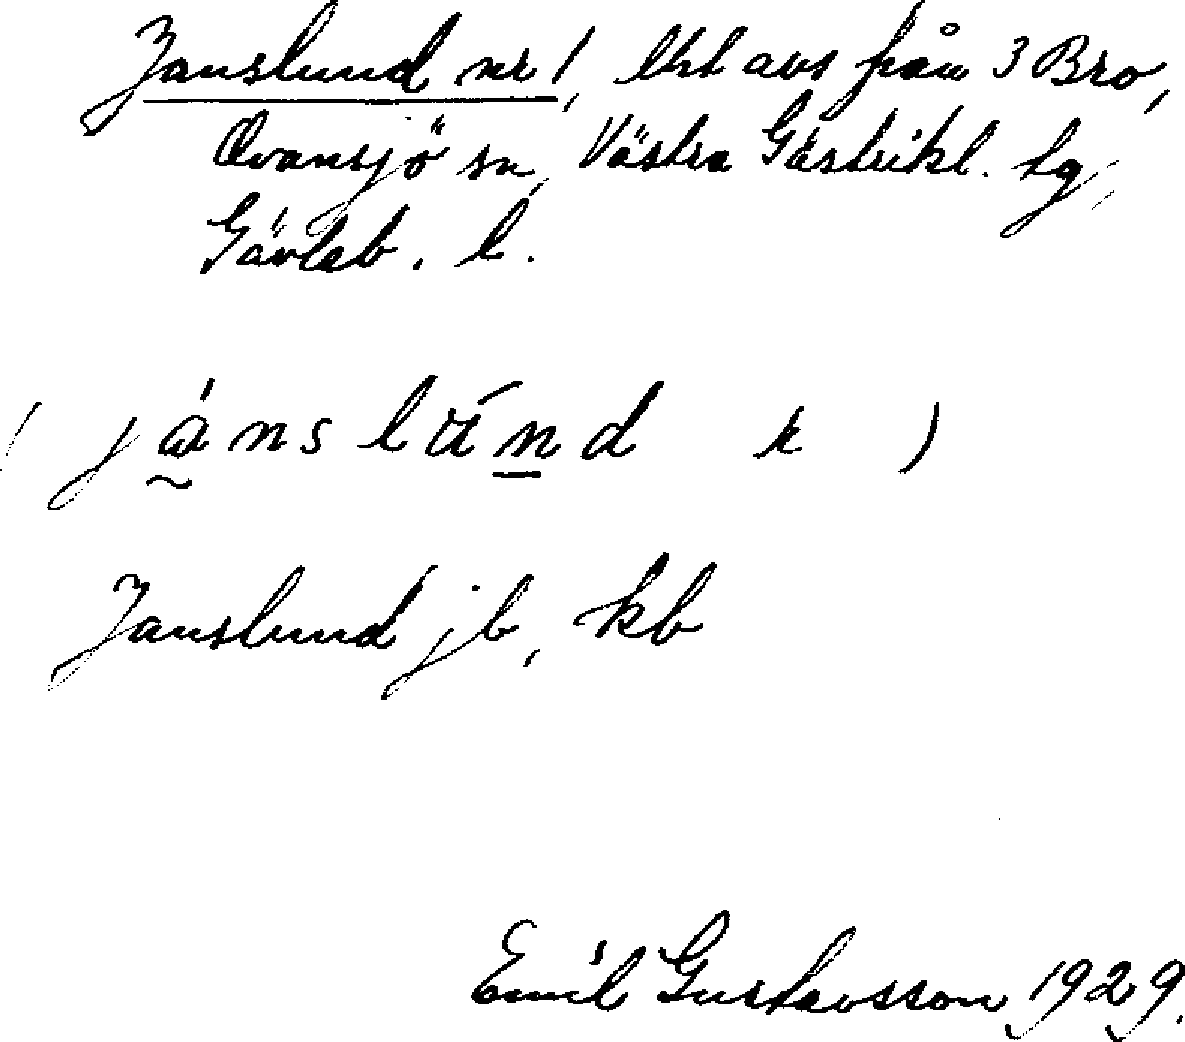 Janslund nr 1, lht avs från 3 Bro,
Ovansjö sn, Västra Gästrikl. tg,
Gävleb. l.
( jánslúnd k )
Janslund jb, kb
Emil Gustavsson 1929.